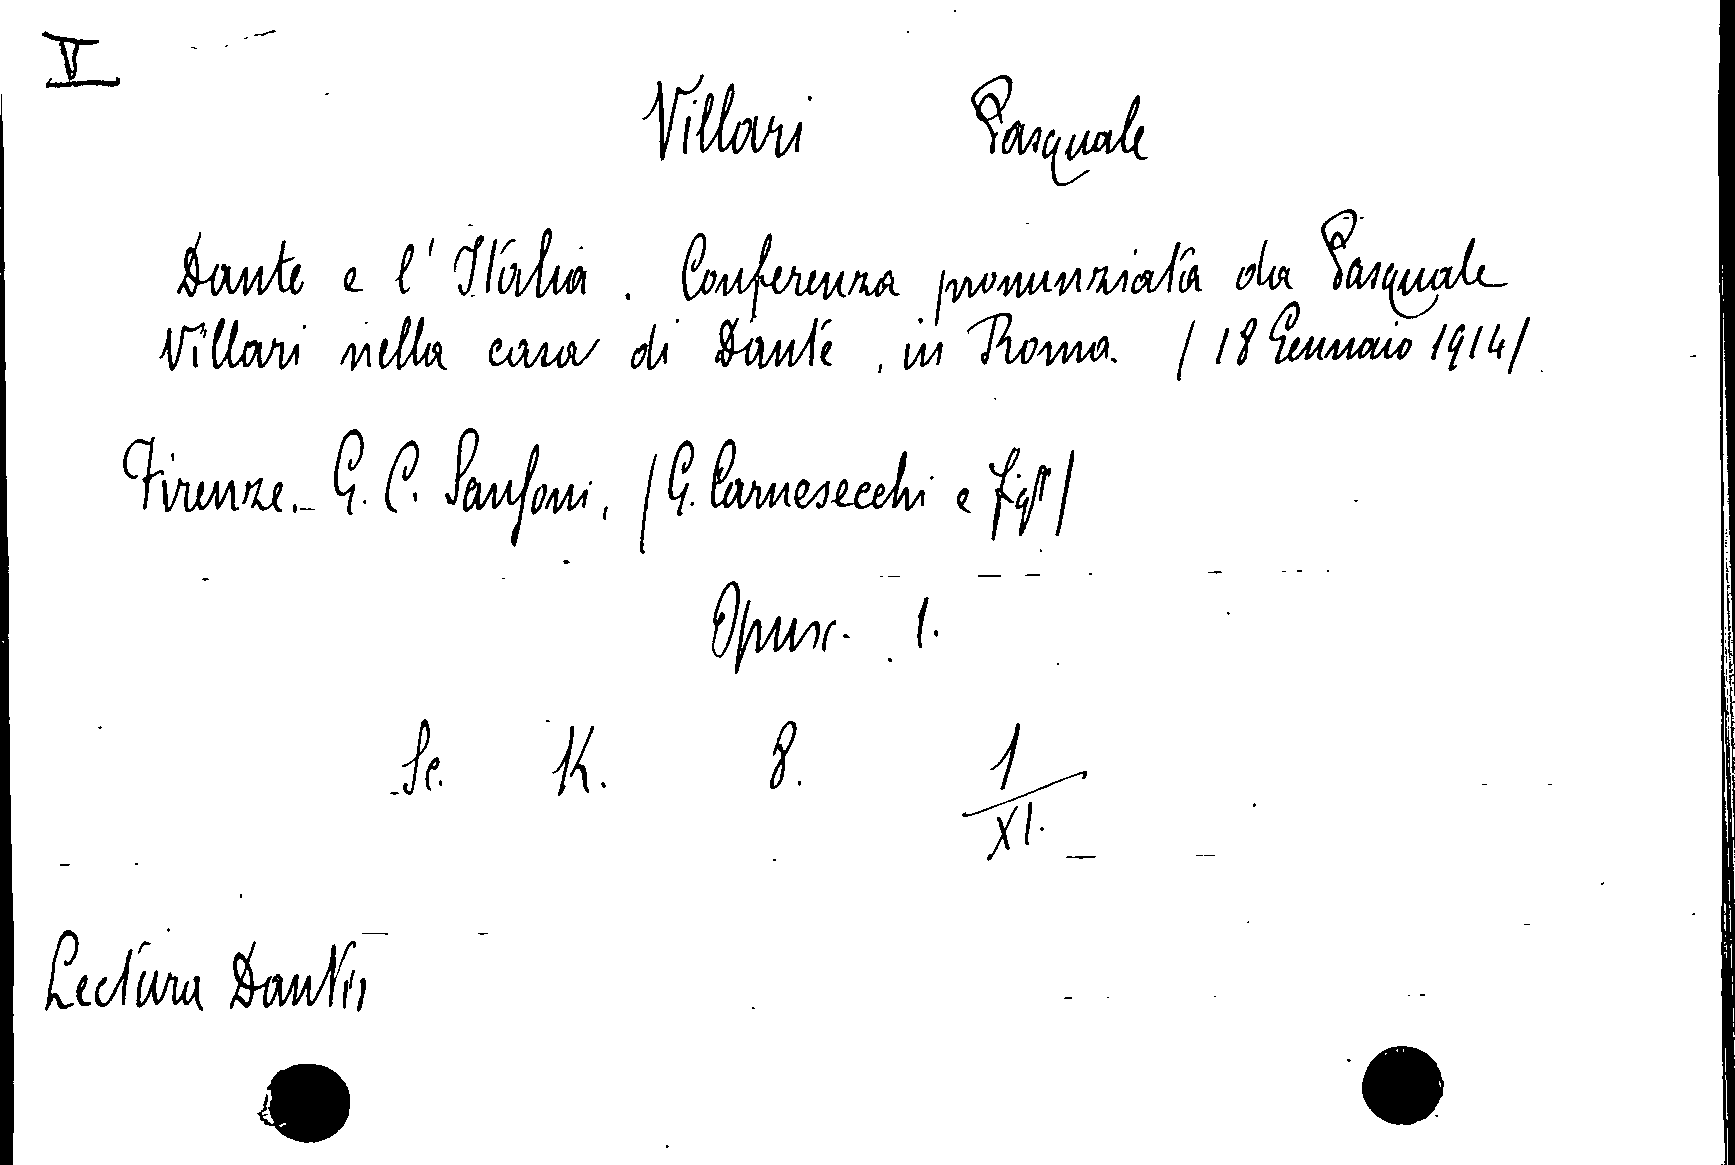 V
Villari Pasquale
Dante e l'Italia. Conferenza pronunziata da Pasquale
Villari nella casa di Dante, in Roma. / 18 Gennaio 1914/
Firenze.- G. C. Sansoni, /G. Carnesecchi e figli/
Opusc. 1.
Sc. K. 8. 1/XI.
Lectura Dantis